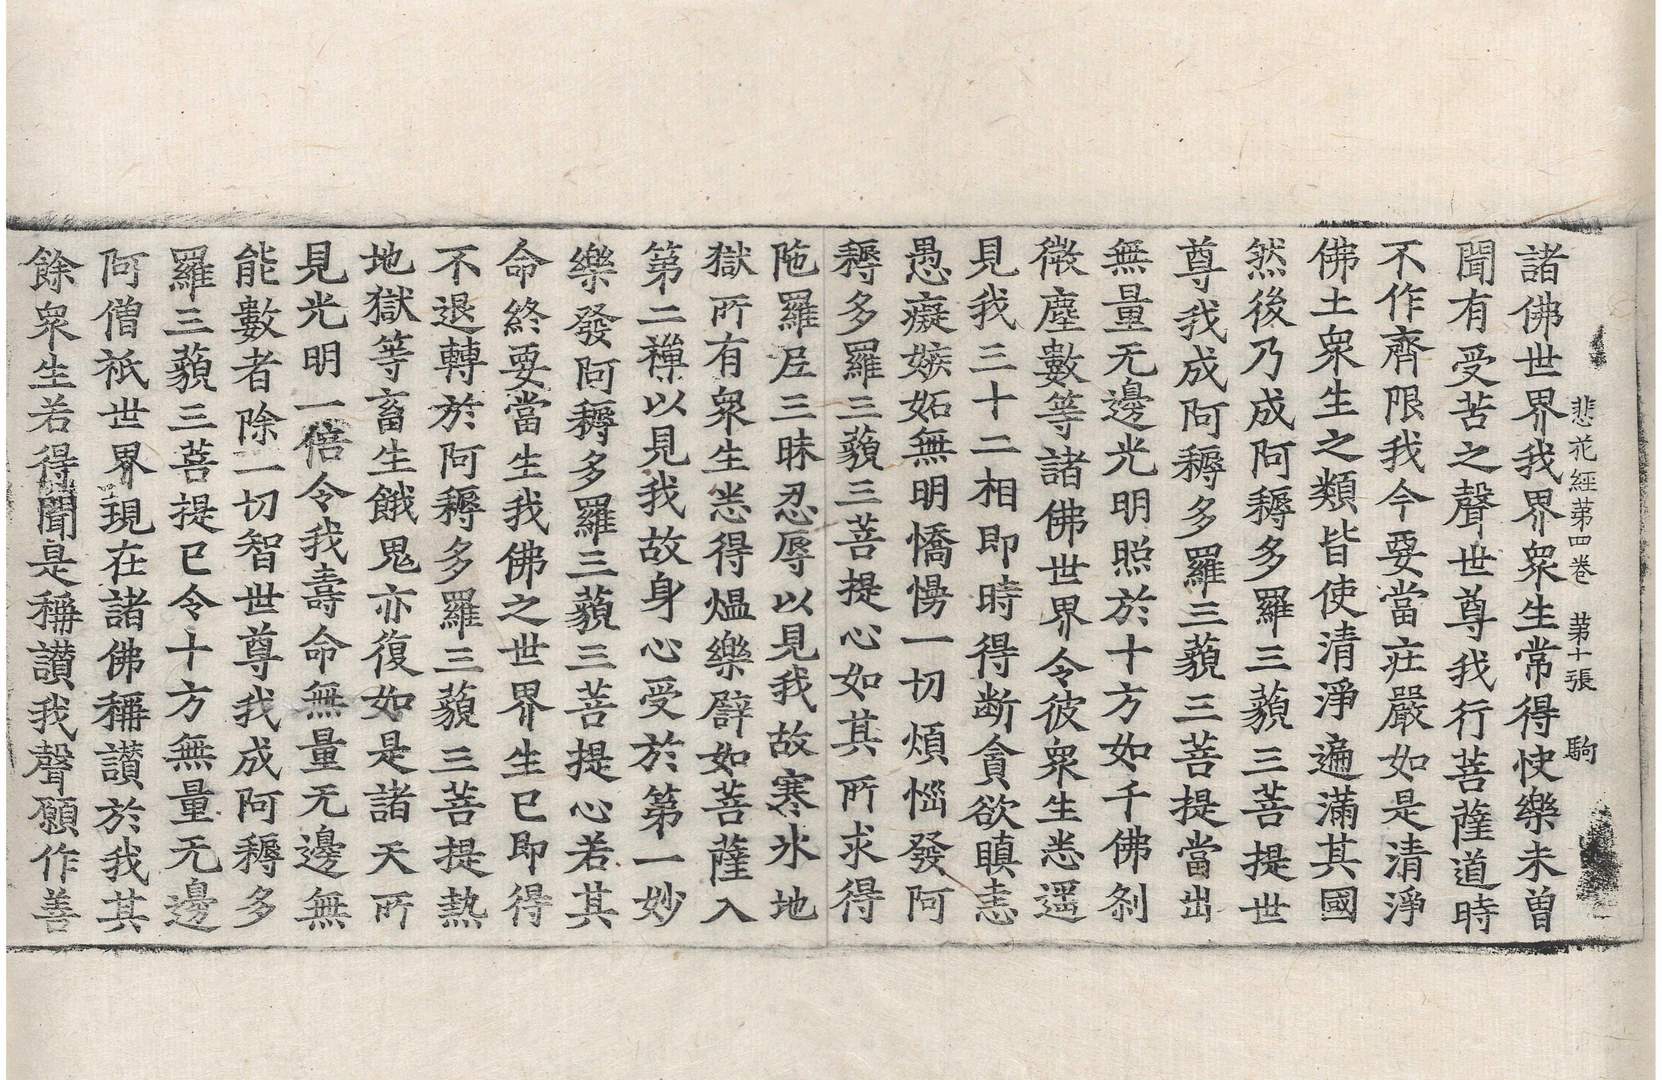 悲花經第四卷 第十張 駒
諸佛世界我界衆生常得快樂未曾
聞有受苦之聲世尊我行菩薩道時
不作齊限我今要當庄嚴如是清淨
佛土衆生之類皆使清淨遍滿其國
然後乃成阿耨多羅三藐三菩提世
尊我成阿耨多羅三藐三菩提當出
無量无邊光明照於十方如千佛刹
微塵數等諸佛世界令彼衆生悉遥
見我三十二相即時得断貪欲瞋恚
愚癡嫉妬無明憍慢一切煩惱發阿
耨多羅三藐三菩提心如其所求得
陁羅尼三昧忍辱以見我故寒氷地
獄所有衆生悉得熅樂譬如菩薩入
第二禪以見我故身心受於第一妙
樂發阿耨多羅三藐三菩提心若其
命終要當生我佛之世界生已即得
不退轉於阿耨多羅三藐三菩提熱
地獄等畜生餓鬼亦復如是諸天所
見光明一倍令我壽命無量无邊無
能數者除一切智世尊我成阿耨多
羅三藐三菩提已令十方無量无邊
阿僧祇世界現在諸佛稱讃於我其
餘衆生若得聞是稱讃我聲願作善